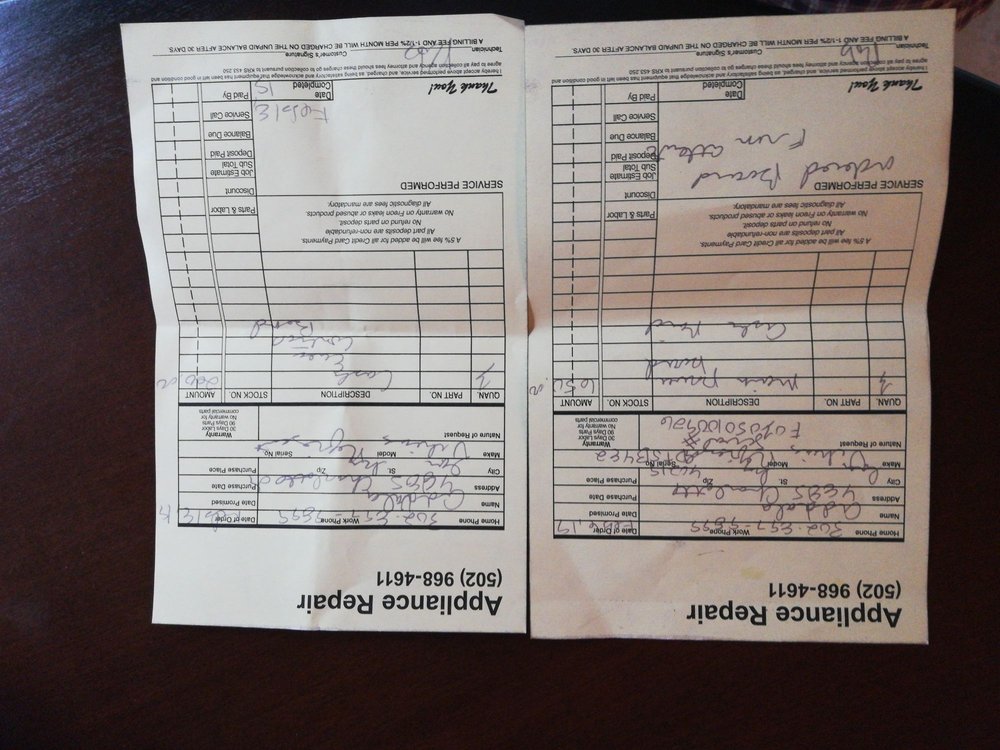 Appliance Repair
(502) 968-4611
Home Phone Work Phone Date of Order
Name Date Promised
Address 4685 Purchase Date
City St. Zip Purchase Place
Make Model Serial No.
Nature of Request
Warranty
30 Days Labor
90 Days Parts
No warranty for
commercial parts
QUAN. PART NO. DESCRIPTION STOCK NO. AMOUNT
main power 650.00
board
A 5% fee will be added for all Credit Card Payments.
All part deposits are non-refundable
No refund on parts deposit.
No warranty on Freon leaks or abused products.
All diagnostic fees are mandatory.
Parts & Labor
Discount
SERVICE PERFORMED
Job Estimate
Sub Total
Deposit Paid
Balance Due
Service Call
Paid By
ordered Board
From
Thank You!
Date
Completed
I hereby accept above performed service, and charges, as being satisfactory and acknowledge that equipment has been left in good condition and
agree to pay all collection agency and attorney fees should these charges go to collection pursuant to KRS 453.250
Technician Customer's Signature
Rob
A BILLING FEE AND 1-1/2% PER MONTH WILL BE CHARGED ON THE UNPAID BALANCE AFTER 30 DAYS.
Appliance Repair
(502) 968-4611
Home Phone Work Phone Date of Order
Name Date Promised
Address 4685 Purchase Date
City St. Zip Purchase Place
Make Model Serial No.
Nature of Request
Warranty
30 Days Labor
90 Days Parts
No warranty for
commercial parts
QUAN. PART NO. DESCRIPTION STOCK NO. AMOUNT
200.00
Control
Board
A 5% fee will be added for all Credit Card Payments.
All part deposits are non-refundable
No refund on parts deposit.
No warranty on Freon leaks or abused products.
All diagnostic fees are mandatory.
Parts & Labor
Discount
SERVICE PERFORMED
Job Estimate
Sub Total
Deposit Paid
Balance Due
Service Call
Paid By
Thank You!
Date
Completed
I hereby accept above performed service, and charges, as being satisfactory and acknowledge that equipment has been left in good condition and
agree to pay all collection agency and attorney fees should these charges go to collection pursuant to KRS 453.250
Technician Customer's Signature
Rob
A BILLING FEE AND 1-1/2% PER MONTH WILL BE CHARGED ON THE UNPAID BALANCE AFTER 30 DAYS.